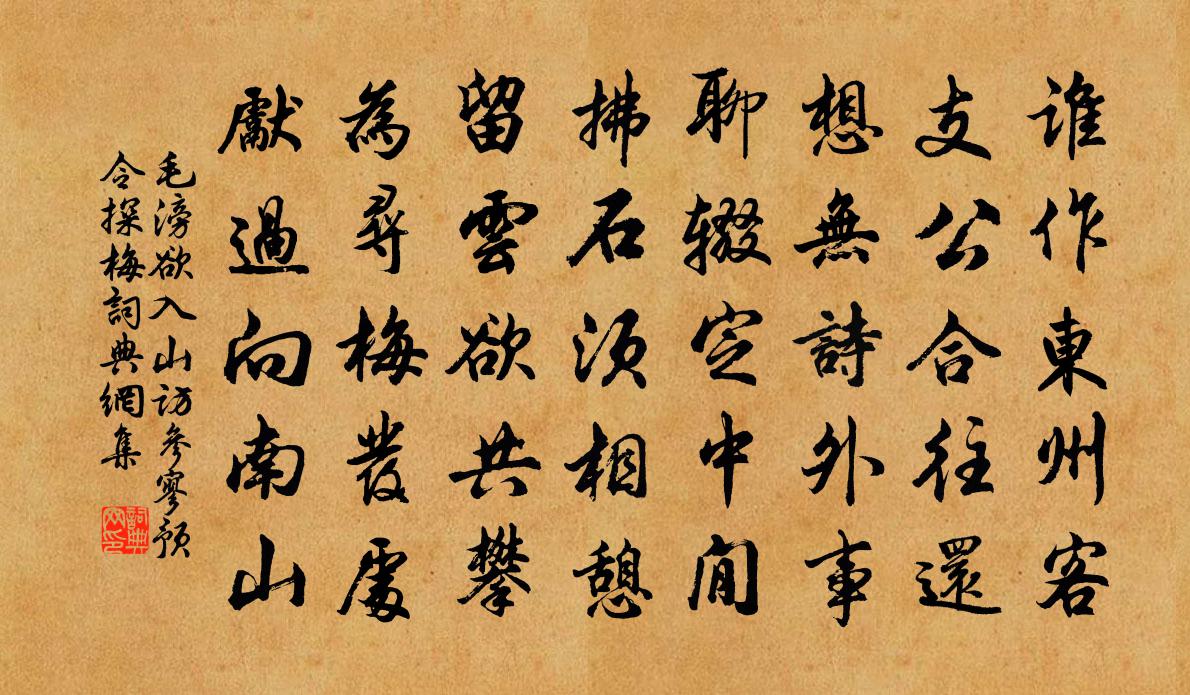 谁作東州客
支公合往還
想無詩外事
聊辍定中閒
拂石須相憩
留雲欲共攀
為尋梅發處
獻過向南山
毛滂欲入山訪參寥預
令探梅詞典網集
詞典網印